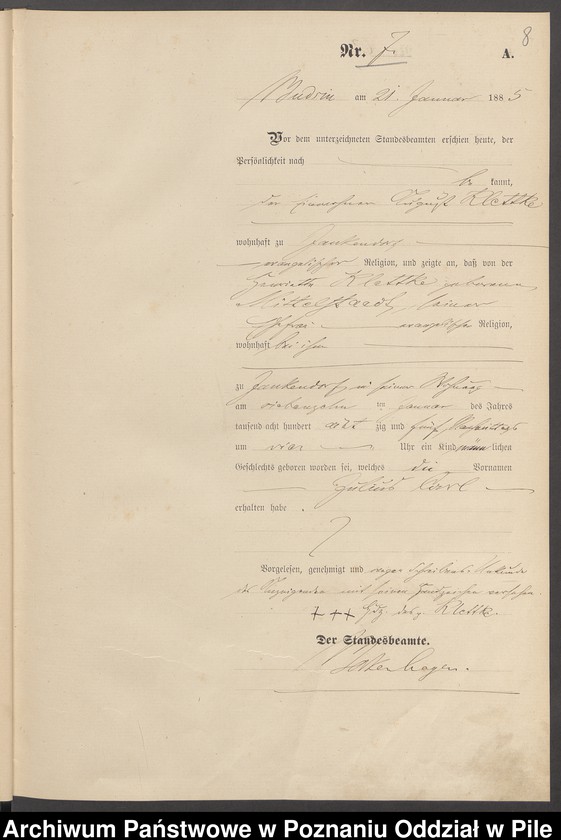 8
Nr. 7.
A.
Budsin am 21. Januar 1885
Vor dem unterzeichneten Standesbeamten erschien heute, der
Persönlichkeit nach
be kannt,
der Einwohner August Klettke
wohnhaft zu Jankendorf
evangelischer Religion, und zeigte an, daß von der
Henriette Klettke geborenen
Mittelstaedt, seiner
Ehefrau evangelischer Religion,
wohnhaft bei ihm
zu Jankendorf in seiner Wohnung
am siebenzehn ten Januar des Jahres
tausend acht hundert acht zig und fünf Nachmittags
um vier Uhr ein Kind männ lichen
Geschlechts geboren worden sei, welches die Vornamen
Julius Carl
erhalten habe .
Vorgelesen, genehmigt und wegen Schreibens Unkunde
des Anzeigenden mit seinem Handzeichen versehen.
+++ Hdz des p. Klettke.
Der Standesbeamte.
Archiwum Państwowe w Poznaniu Oddział w Pile